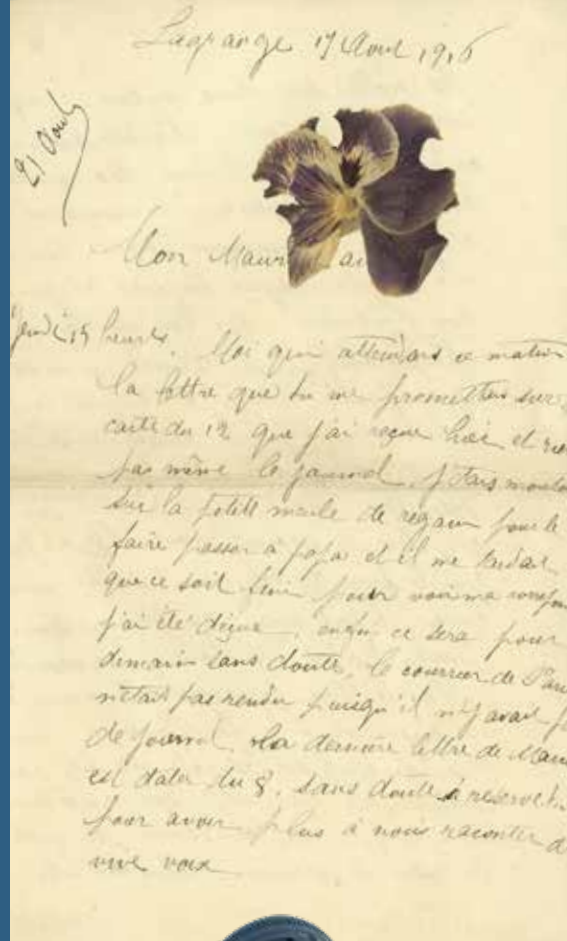 Lagrange 17 Aout 1916
21 Aout
Mon Mauri
Jeudi 15 heures. Moi qui attendais ce matin
la lettre que tu me promettais sur
carte du 12 que j'ai reçue hier et rien
pas même le journal, j'étais montée
sur la petite meule de regain pour le
faire passer à papa et il me tardait
que ce soit fini pour voir ma
j'ai été déçue, enfin ce sera pour
demain sans doute, le courrier de Paris
n'était pas rendu puisqu'il n'y avait pas
de journal. La dernière lettre de
est datée du 8, sans doute se réserve
pour avoir plus à nous raconter de
vive voix